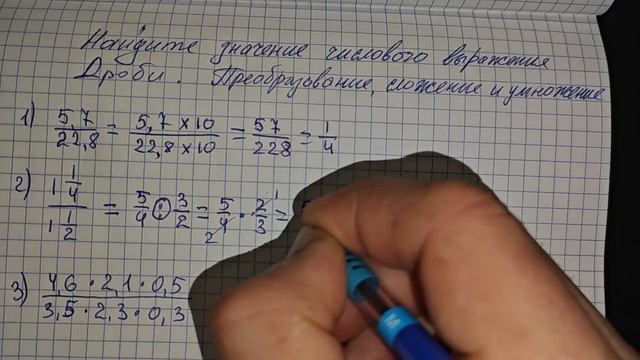 Найдите значение числового выражения
Дроби. Преобразование, сложение и умножение
1) 5,7/22,8 = 5,7 × 10/22,8 × 10 = 57/228 = 1/4
2) 1 1/4 / 1 1/2 = 5/4 : 3/2 = 5/4 2 · 2 1/3 = 5
3) 4,6 · 2,1 · 0,5/3,5 · 2,3 · 0,3